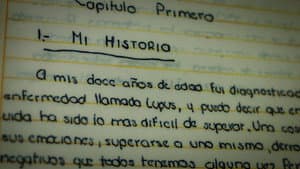 Capitulo Primero
1.- Mi Historio
A mis doce años de edad fui diagnostica
enfermedad llamada Lupus, y puedo decir que e
vida ha sido lo mas dificil de superar. Una cos
sus emociones, superarse a uno mismo, derro
negativos que todos tenemos alguna vez. Pe